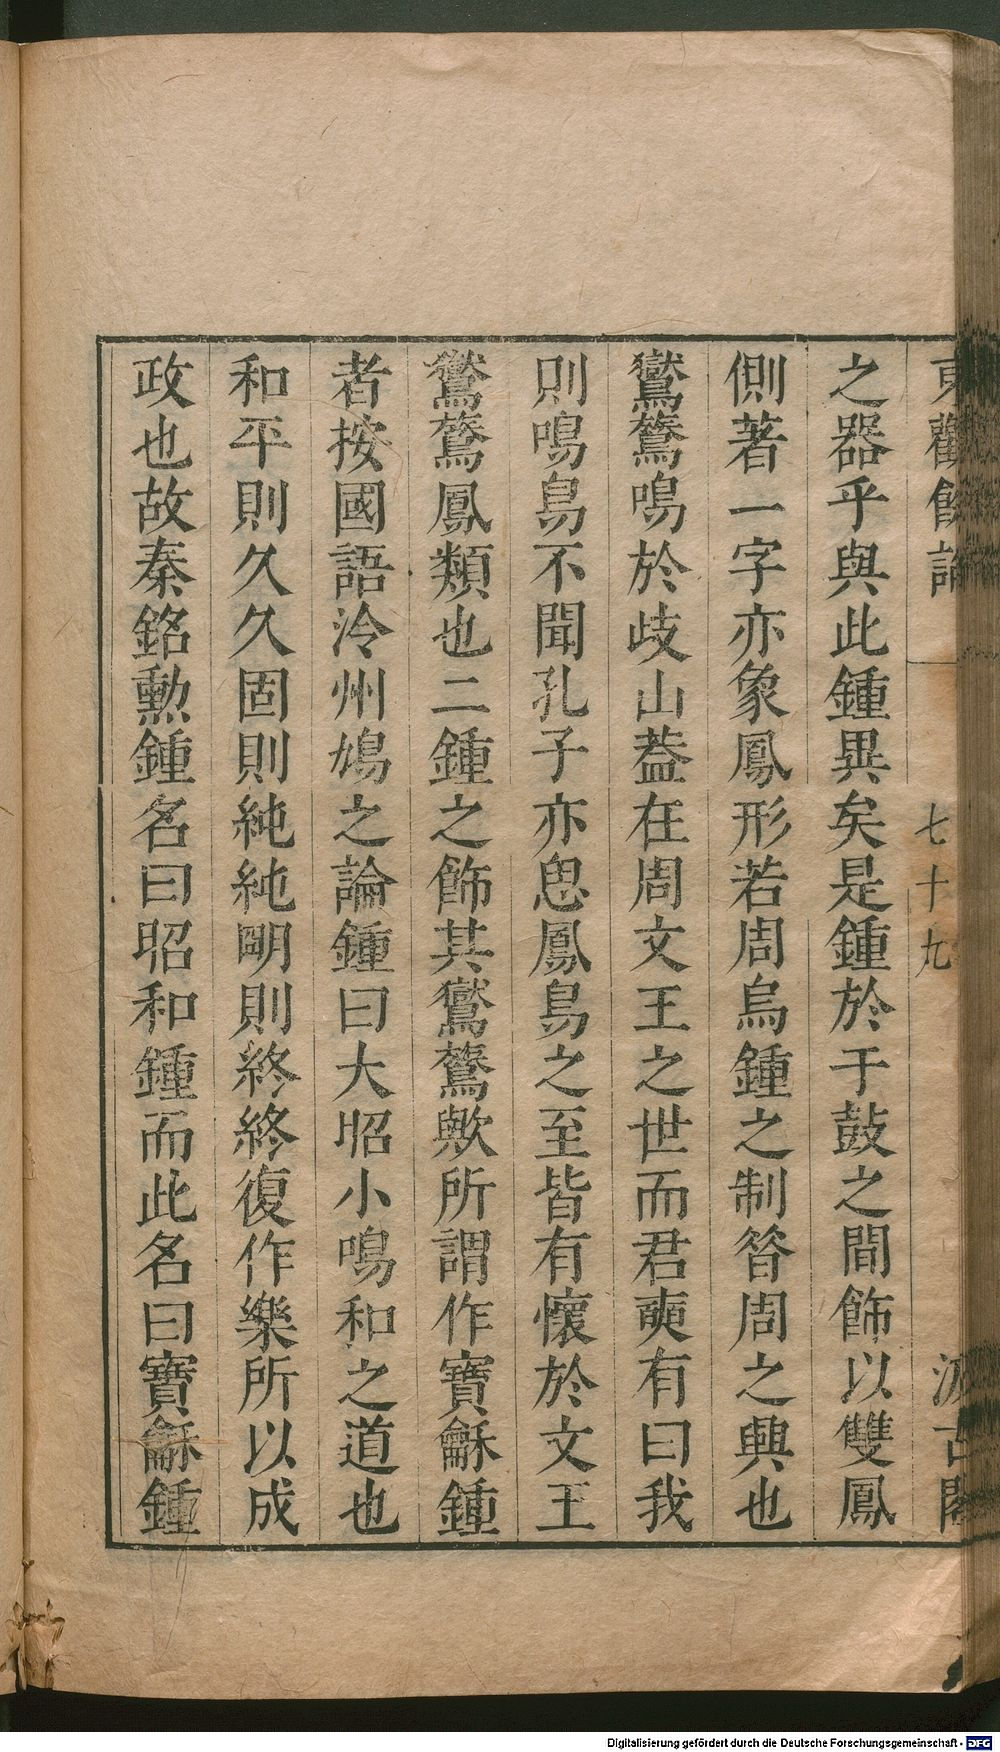 東觀餘論
七十九
汲古閣
之器乎與此鍾異矣是鍾於于鼓之間飾以雙鳳
側著一字亦象鳳形若周烏鍾之制昝周之興也
鸑鷟鳴於歧山葢在周文王之世而君奭有曰我
則鳴鳥不聞孔子亦思鳳鳥之至皆有懷於文王
鸑鷟鳳類也二鍾之飾其鸑鷟歟所謂作寶龢鍾
者按國語泠州鳩之論鍾曰大昭小鳴和之道也
和平則久久固則純純明則終終復作樂所以成
政也故秦銘勲鍾名曰昭和鍾而此名曰寶龢鍾
Digitalisierung gefördert durch die Deutsche Forschungsgemeinschaft - DFG